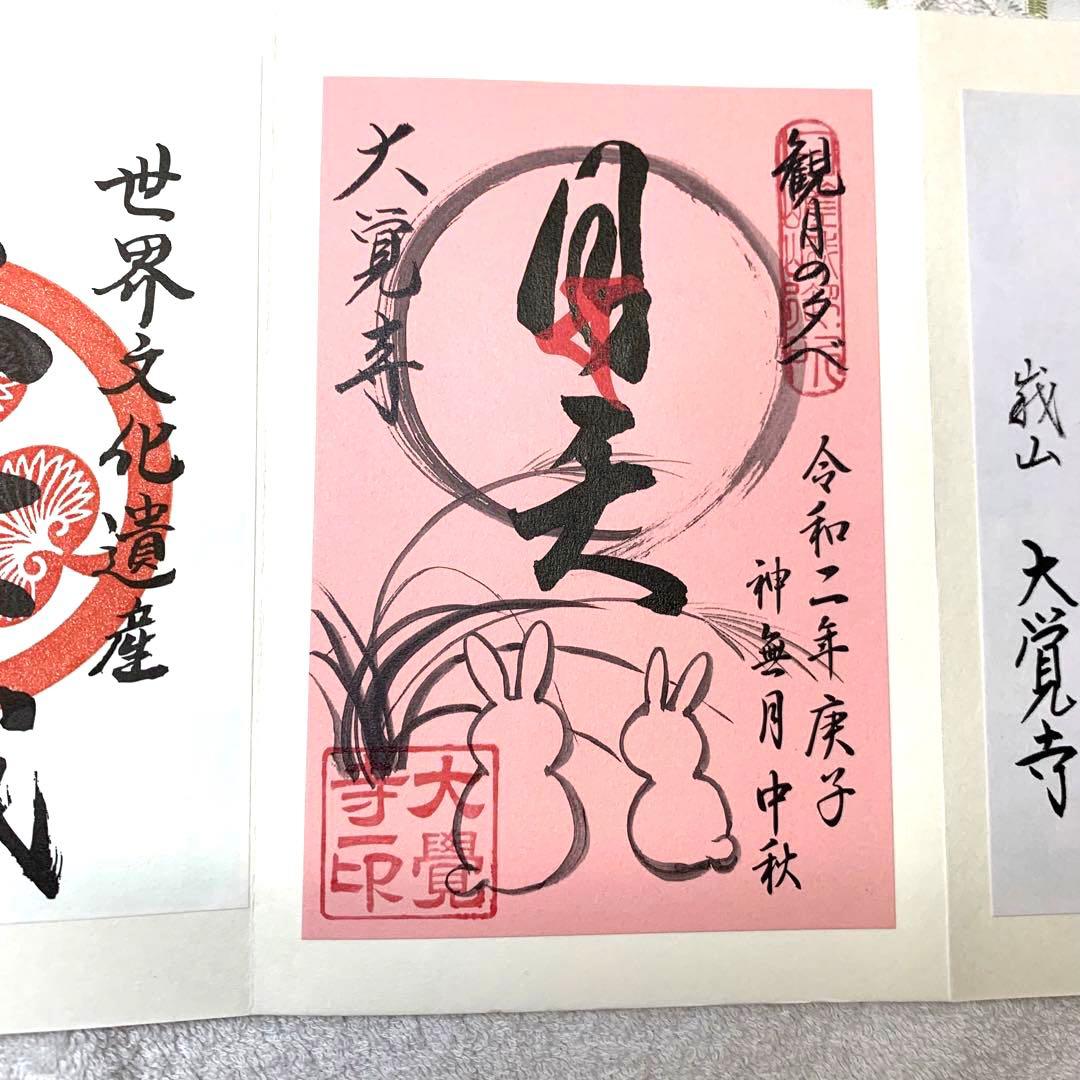 峩山 大覚寺
観月の夕べ
令和二年庚子
神無月中秋
月天
大覚寺
大覺
寺印
世界文化遺産